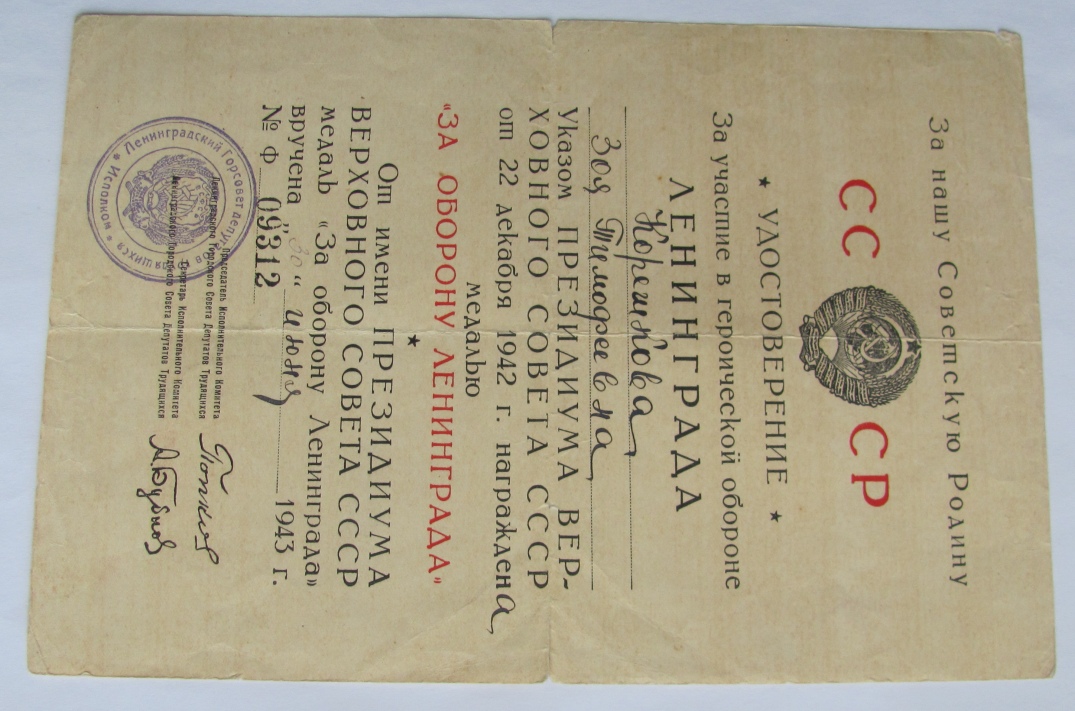 За нашу Советскую Родину
СС СР
★ УДОСТОВЕРЕНИЕ ★
За участие в героической обороне
ЛЕНИНГРАДА
Корешкова
Зоя Тимофеевна
Указом ПРЕЗИДИУМА ВЕР-
ХОВНОГО СОВЕТА СССР
от 22 декабря 1942 г. награждена,
медалью
«ЗА ОБОРОНУ ЛЕНИНГРАДА»
★
От имени ПРЕЗИДИУМА
ВЕРХОВНОГО СОВЕТА СССР
медаль «За оборону Ленинграда»
вручена „30“ июня 1943 г.
№ Ф 09312
Председатель Исполнительного Комитета
Ленинградского Городского Совета Депутатов Трудящихся
Попков
Секретарь Исполнительного Комитета
Ленинградского Городского Совета Депутатов Трудящихся
А. Бубнов
Ленинградский Горсовет депутатов трудящихся ★ Исполком ★